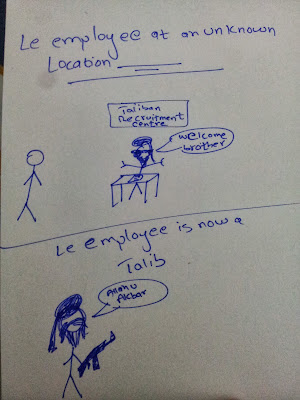 Le employee at an unknown
Location
Taliban
Recruitment
Centre
Welcome
brother
Le employee is now a
Talib
Allahu
Akbar